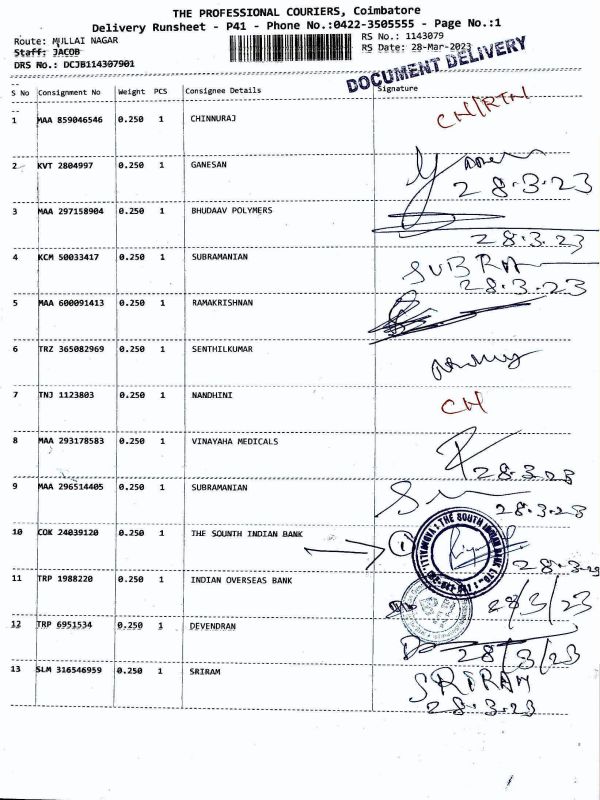 THE PROFESSIONAL COURIERS, Coimbatore
Delivery Runsheet - P41 - Phone No.:0422-3505555 - Page No.:1
Route: MULLAI NAGAR
RS No.: 1143079
Staff: JACOB
RS Date: 28-Mar-2023
DRS No.: DCJB114307901
DOCUMENT DELIVERY
S No Consignment No Weight PCS Consignee Details Signature
1 MAA 859046546 0.250 1 CHINNURAJ CH/RTN
2 KVT 2804997 0.250 1 GANESAN
28.3.23
3 MAA 297158904 0.250 1 BHUDAAV POLYMERS
28.3.23
4 KCM 50033417 0.250 1 SUBRAMANIAN SUBRA
28.3.23
5 MAA 600091413 0.250 1 RAMAKRISHNAN
6 TRZ 365082969 0.250 1 SENTHILKUMAR
7 TNJ 1123803 0.250 1 NANDHINI CH
8 MAA 293178583 0.250 1 VINAYAHA MEDICALS
28.3.23
9 MAA 296514405 0.250 1 SUBRAMANIAN
28.3.23
10 COK 24039120 0.250 1 THE SOUNTH INDIAN BANK 1
THE SOUTH INDIAN BANK LTD.
11 TRP 1988220 0.250 1 INDIAN OVERSEAS BANK 28/3/23
12 TRP 6951534 0.250 1 DEVENDRAN
28/3/23
13 SLM 316546959 0.250 1 SRIRAM SRIRAM
28.3.23